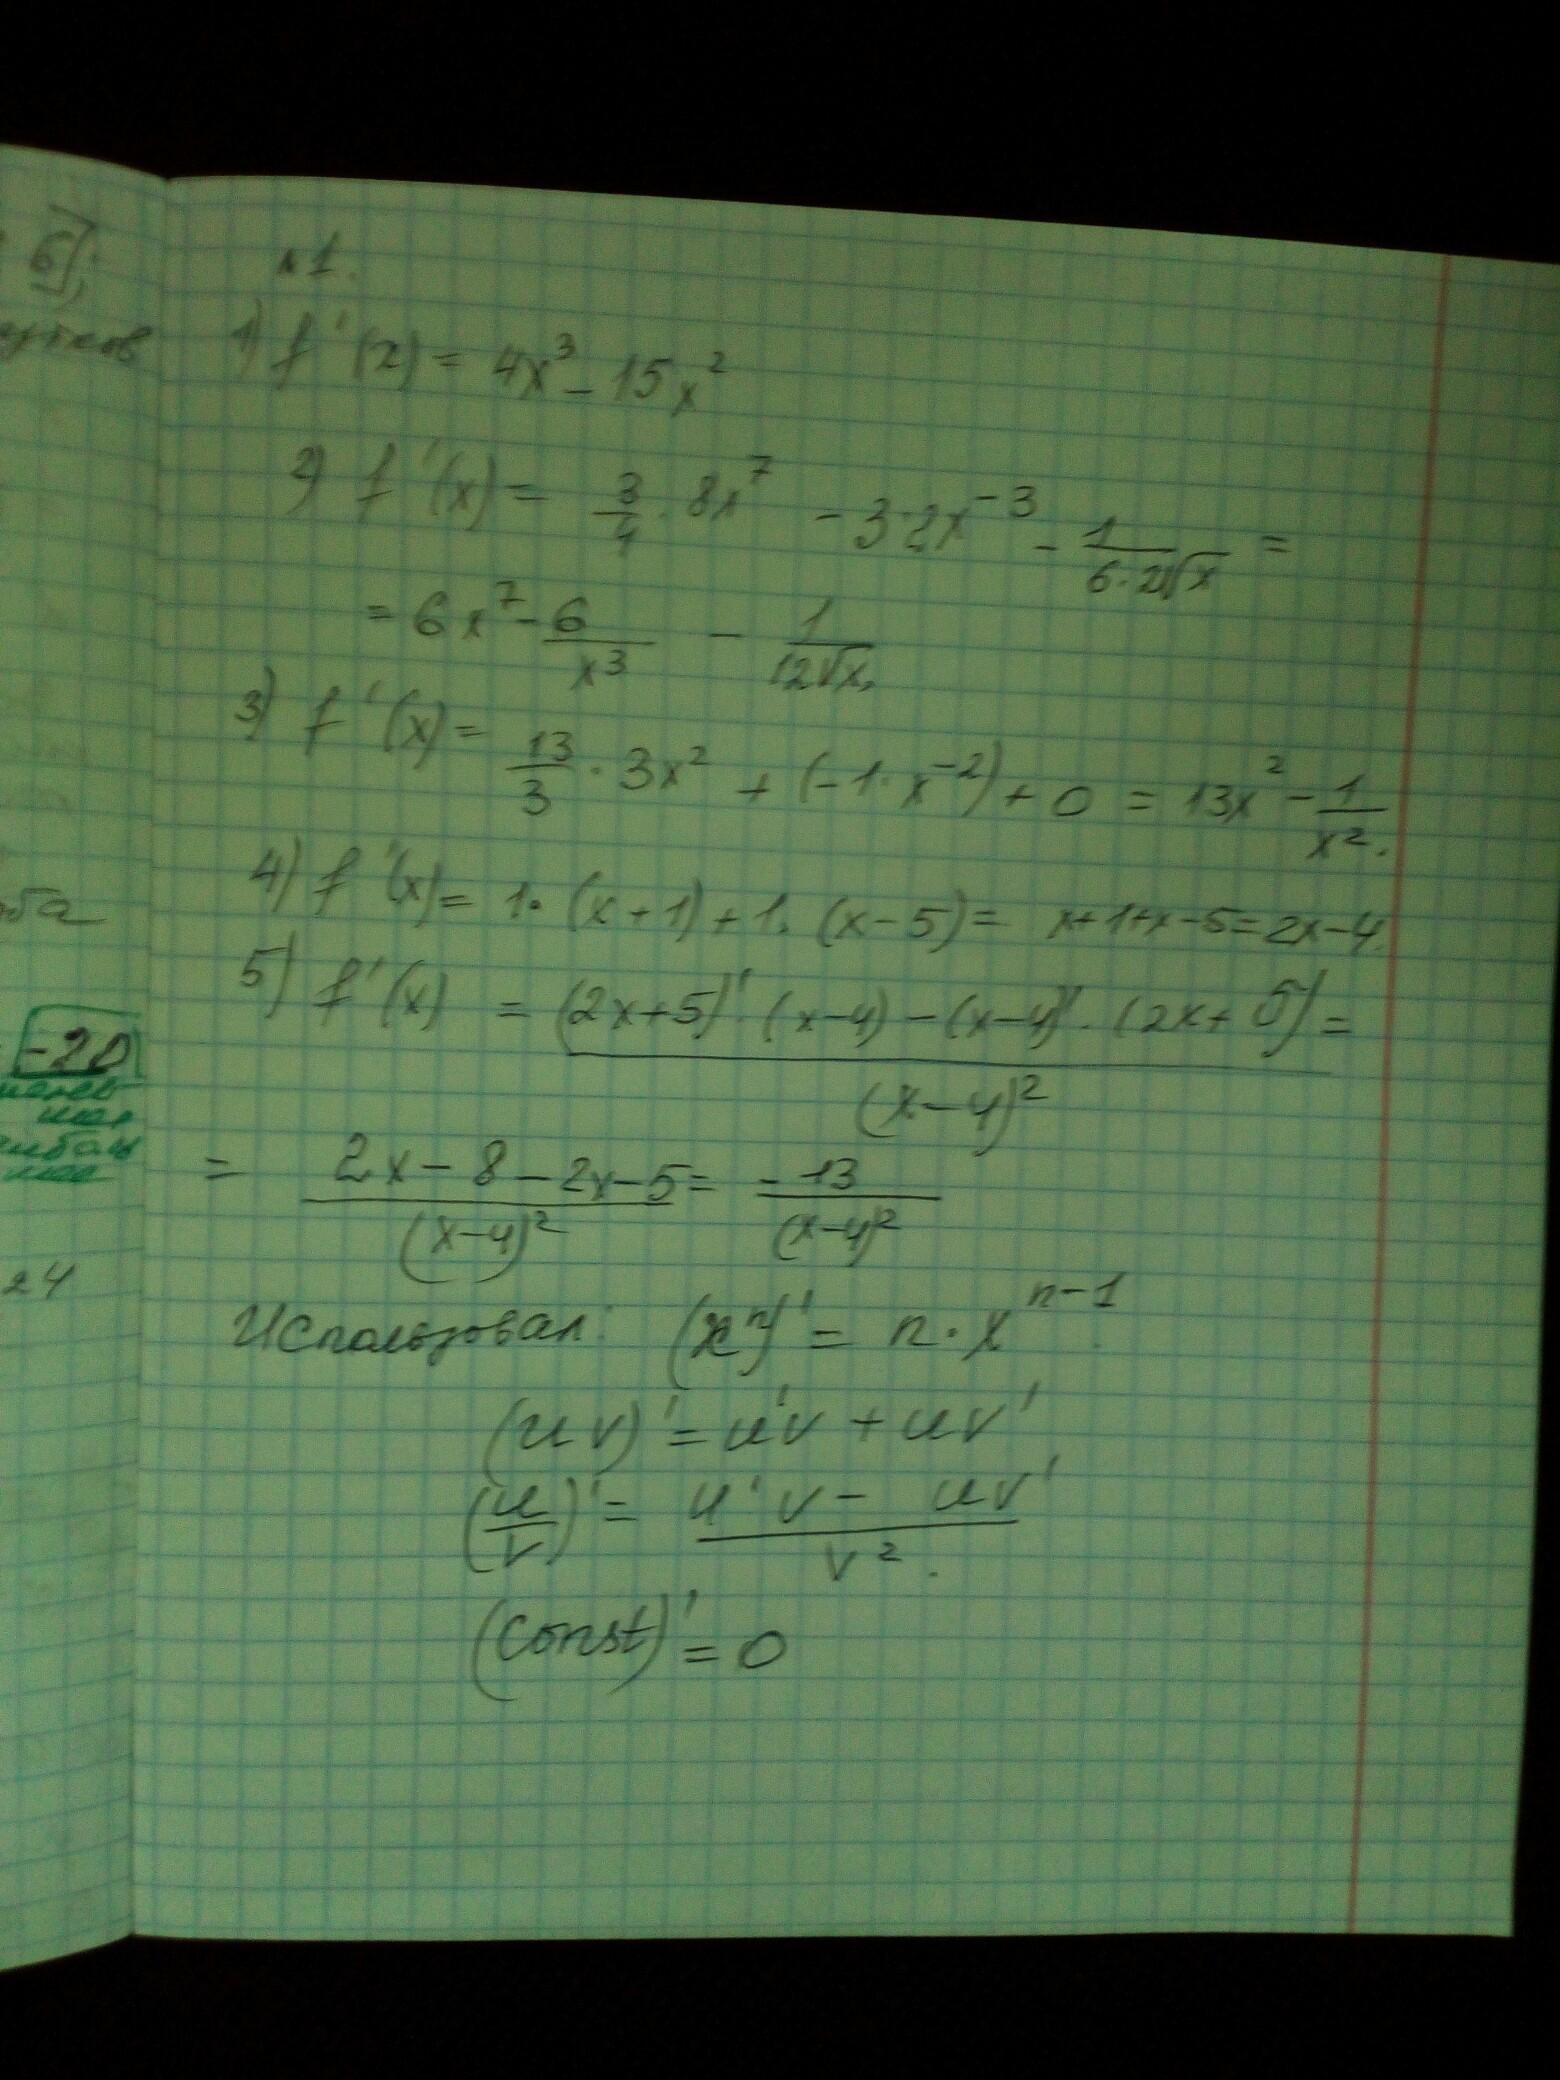 6];
№1.
1) f'(x) = 4x³ - 15x²
2) f'(x) = 3/4 · 8x⁷ - 3·2x⁻³ - 1/(6·2√x) =
= 6x⁷ - 6/x³ - 1/(12√x),
3) f'(x) = 13/3 · 3x² + (-1·x⁻²) + 0 = 13x² - 1/x².
4) f'(x) = 1·(x+1)+1·(x-5) = x+1+x-5=2x-4.
5) f'(x) = ((2x+5)'·(x-4)-(x-4)'·(2x+5))/(x-4)² =
-20
= (2x-8-2x-5)/(x-4)² = -13/(x-4)²
24
Использовал: (xⁿ)' = n·xⁿ⁻¹
(uv)' = u'v + uv'
(u/v)' = (u'v - uv')/v².
(const)' = 0